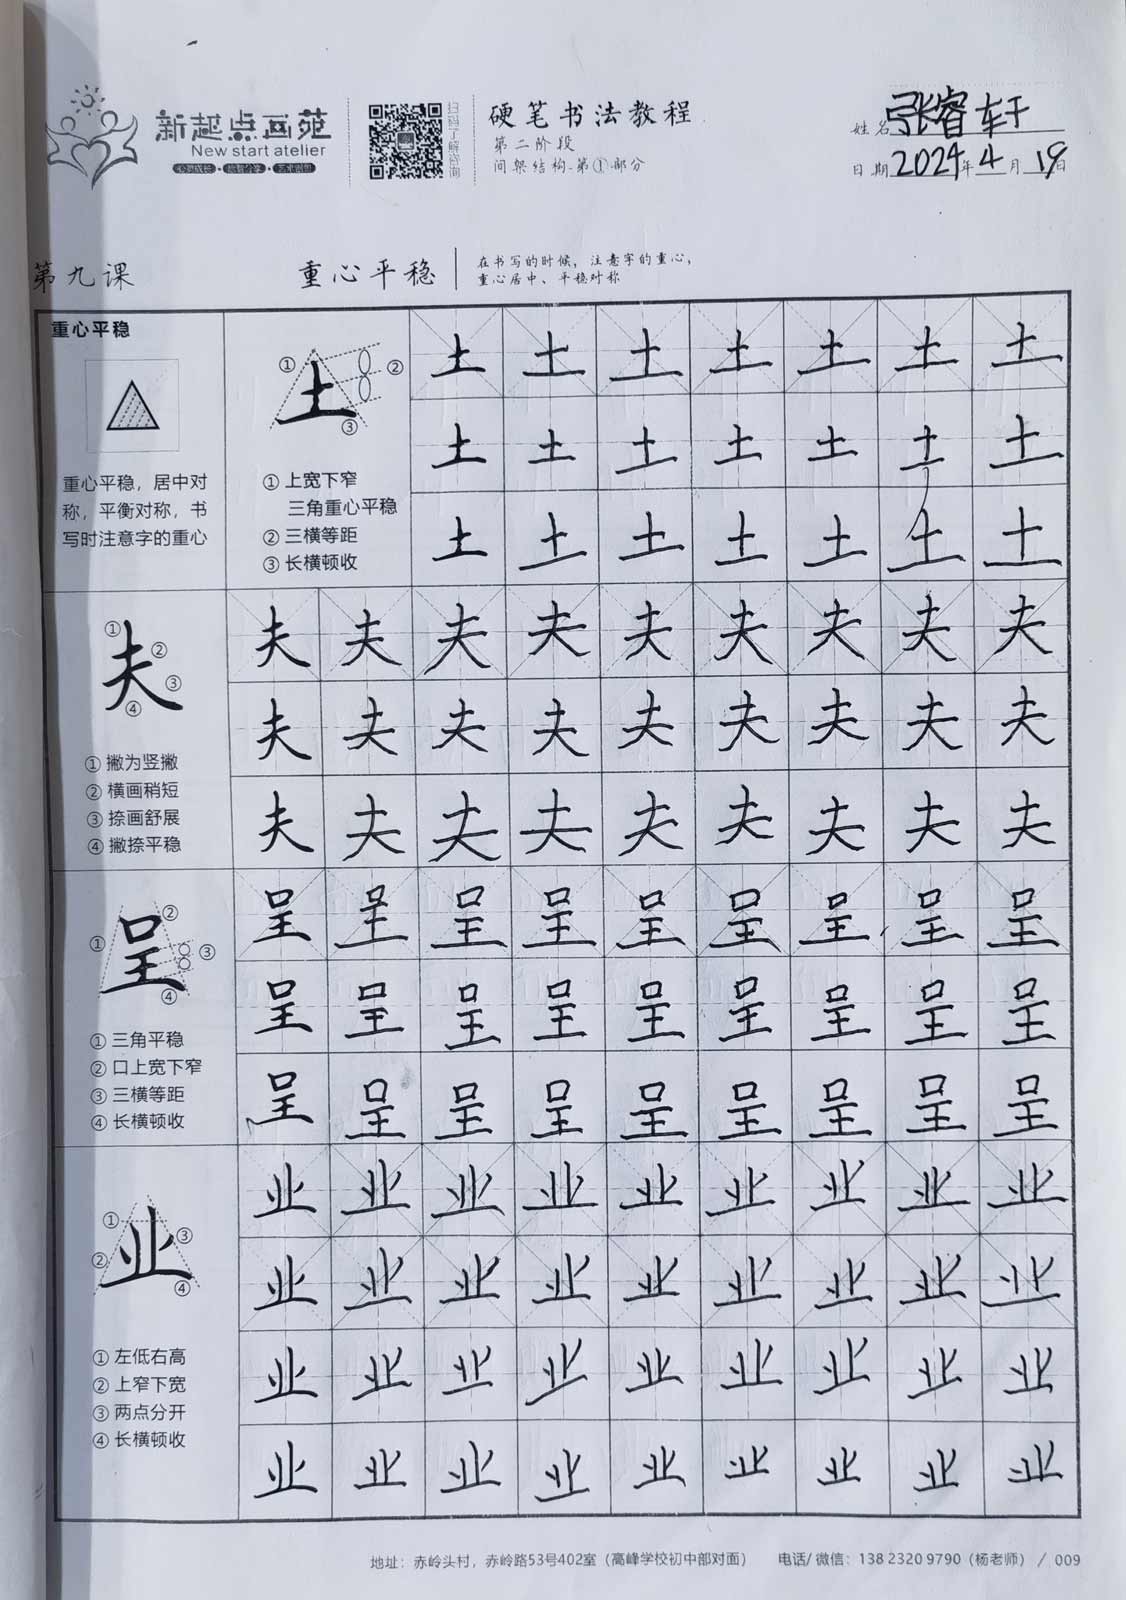 新起点画苑
New start atelier
扫码了解咨询
硬笔书法教程
第二阶段
间架结构-第①部分
姓名 张睿轩
日期 2024年4月19日
第九课
重心平稳
在书写的时候，注意字的重心，
重心居中、平稳对称
重心平稳
重心平稳，居中对
称，平衡对称，书
写时注意字的重心
① ② ③
土
① 上宽下窄
三角重心平稳
② 三横等距
③ 长横顿收
土 土 土 土 土 土 土
土 土 土 土 土 土 土
土 土 土 土 土 土 土
① ② ③ ④
夫
① 撇为竖撇
② 横画稍短
③ 捺画舒展
④ 撇捺平稳
夫 夫 夫 夫 夫 夫 夫 夫 夫
夫 夫 夫 夫 夫 夫 夫 夫 夫
夫 夫 夫 夫 夫 夫 夫 夫 夫
① ② ③ ④
呈
① 三角平稳
② 口上宽下窄
③ 三横等距
④ 长横顿收
呈 呈 呈 呈 呈 呈 呈 呈 呈
呈 呈 呈 呈 呈 呈 呈 呈 呈
呈 呈 呈 呈 呈 呈 呈 呈 呈
① ② ③ ④
业
① 左低右高
② 上窄下宽
③ 两点分开
④ 长横顿收
业 业 业 业 业 业 业 业 业
业 业 业 业 业 业 业 业 业
业 业 业 业 业 业 业 业 业
业 业 业 业 业 业 业 业 业
地址：赤岭头村，赤岭路53号402室（高峰学校初中部对面） 电话/ 微信：138 2320 9790（杨老师） / 009